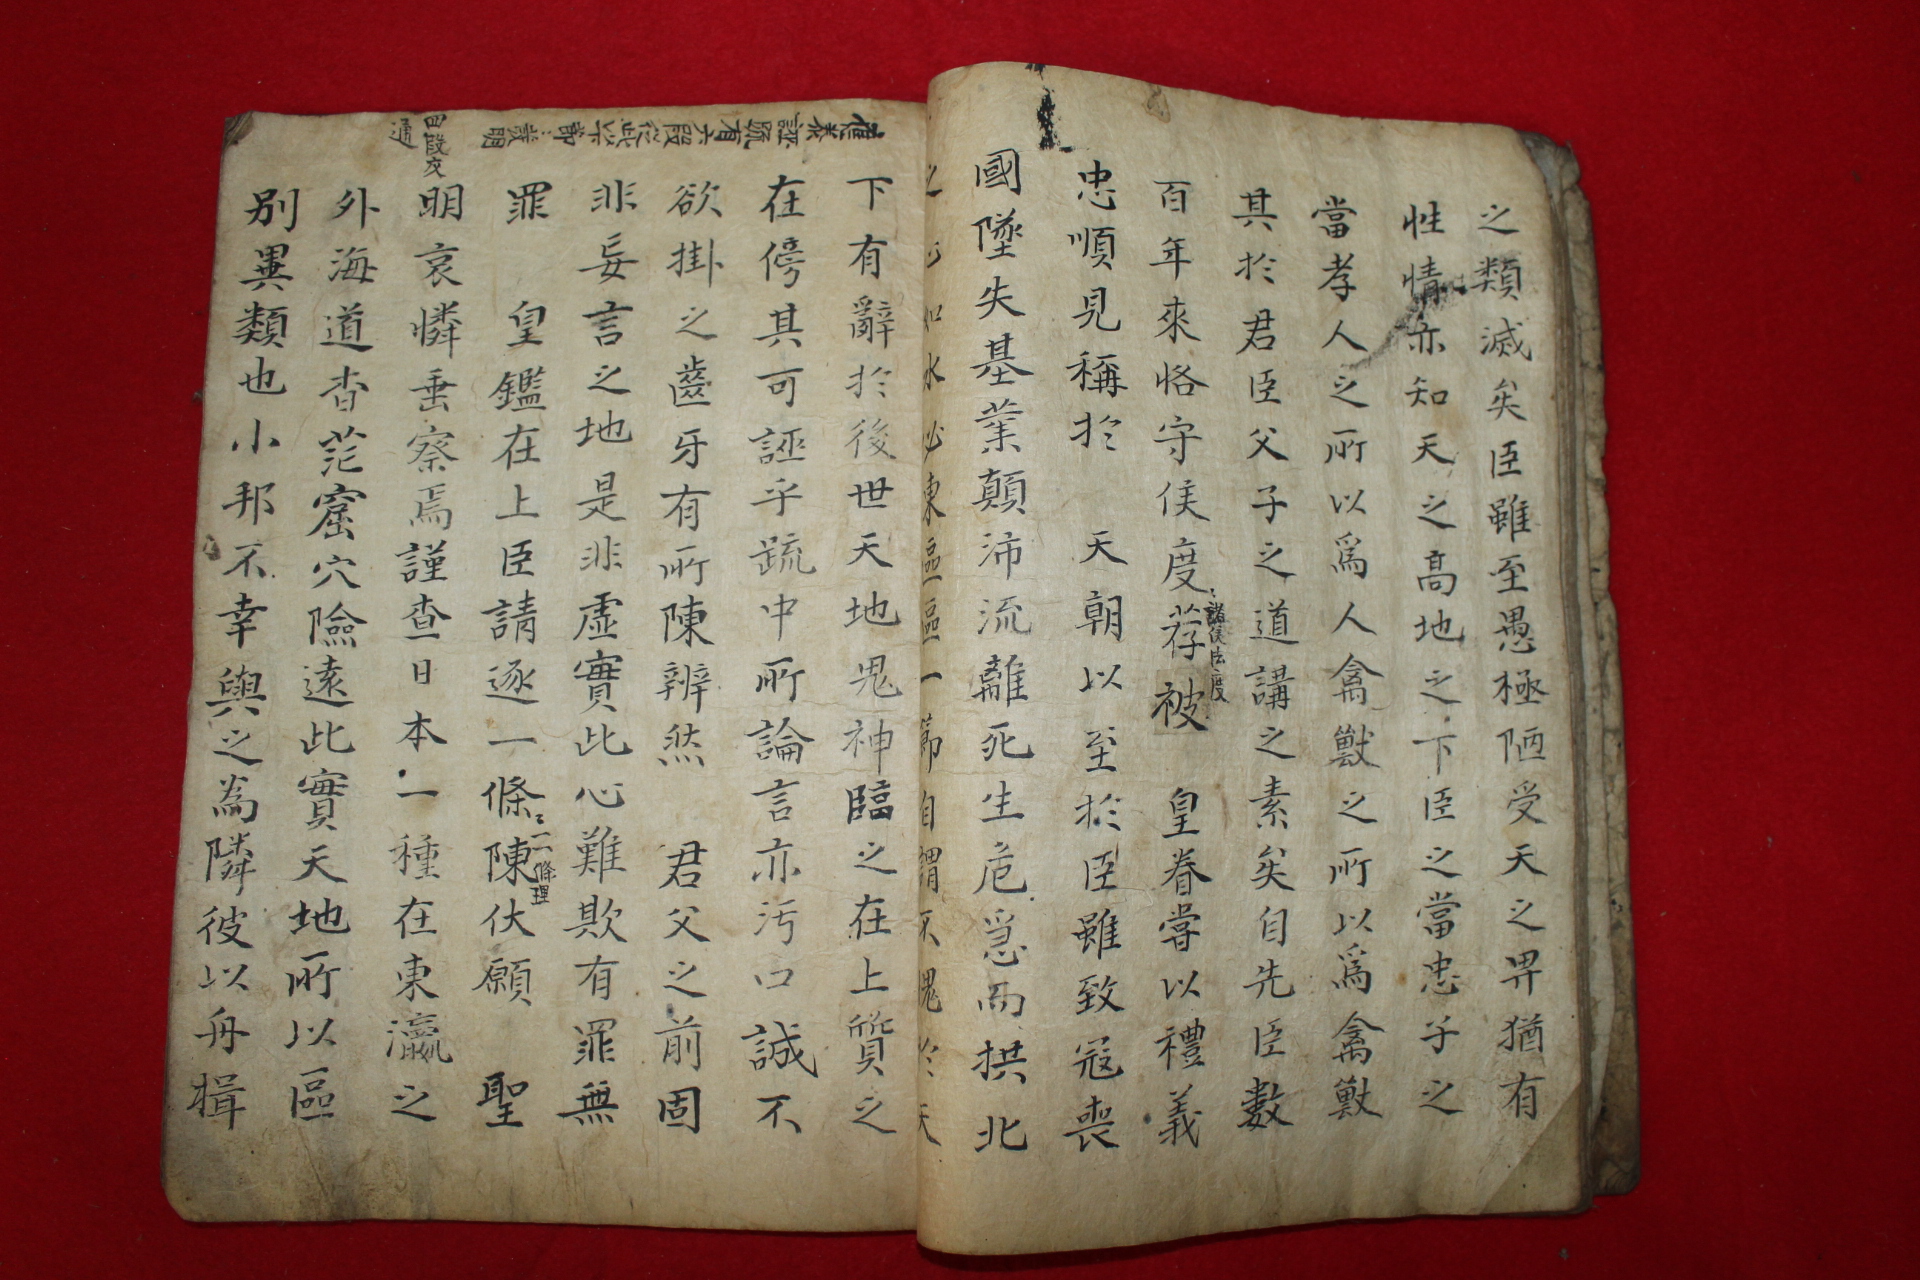 之類滅矣臣雖至愚極陋受天之畀猶有
性情亦知天之高地之下臣之當忠子之
當孝人之所以爲人禽獸之所以爲禽獸
其於君臣父子之道講之素矣自先臣數
百年來恪守侯度荐被 皇眷嘗以禮義
諸侯法度
忠順見稱於 天朝以至於臣雖致寇喪
國墜失基業顛沛流離死生危急而拱北
之心如水必東區區一節自謂不愧於天
下有辭於後世天地鬼神臨之在上質之
在傍其可誣乎疏中所論言亦汚口誠不
欲掛之齒牙有所陳辨然 君父之前固
非妄言之地是非虛實此心難欺有罪無
罪 皇鑑在上臣請逐一條陳伏願 聖
二條理
明哀憐垂察焉謹查日本一種在東瀛之
外海道杳茫窟穴險遠此實天地所以區
別異類也小邦不幸與之為隣彼以舟楫
誣䟽有六段從此竿節節發明
四段交
通